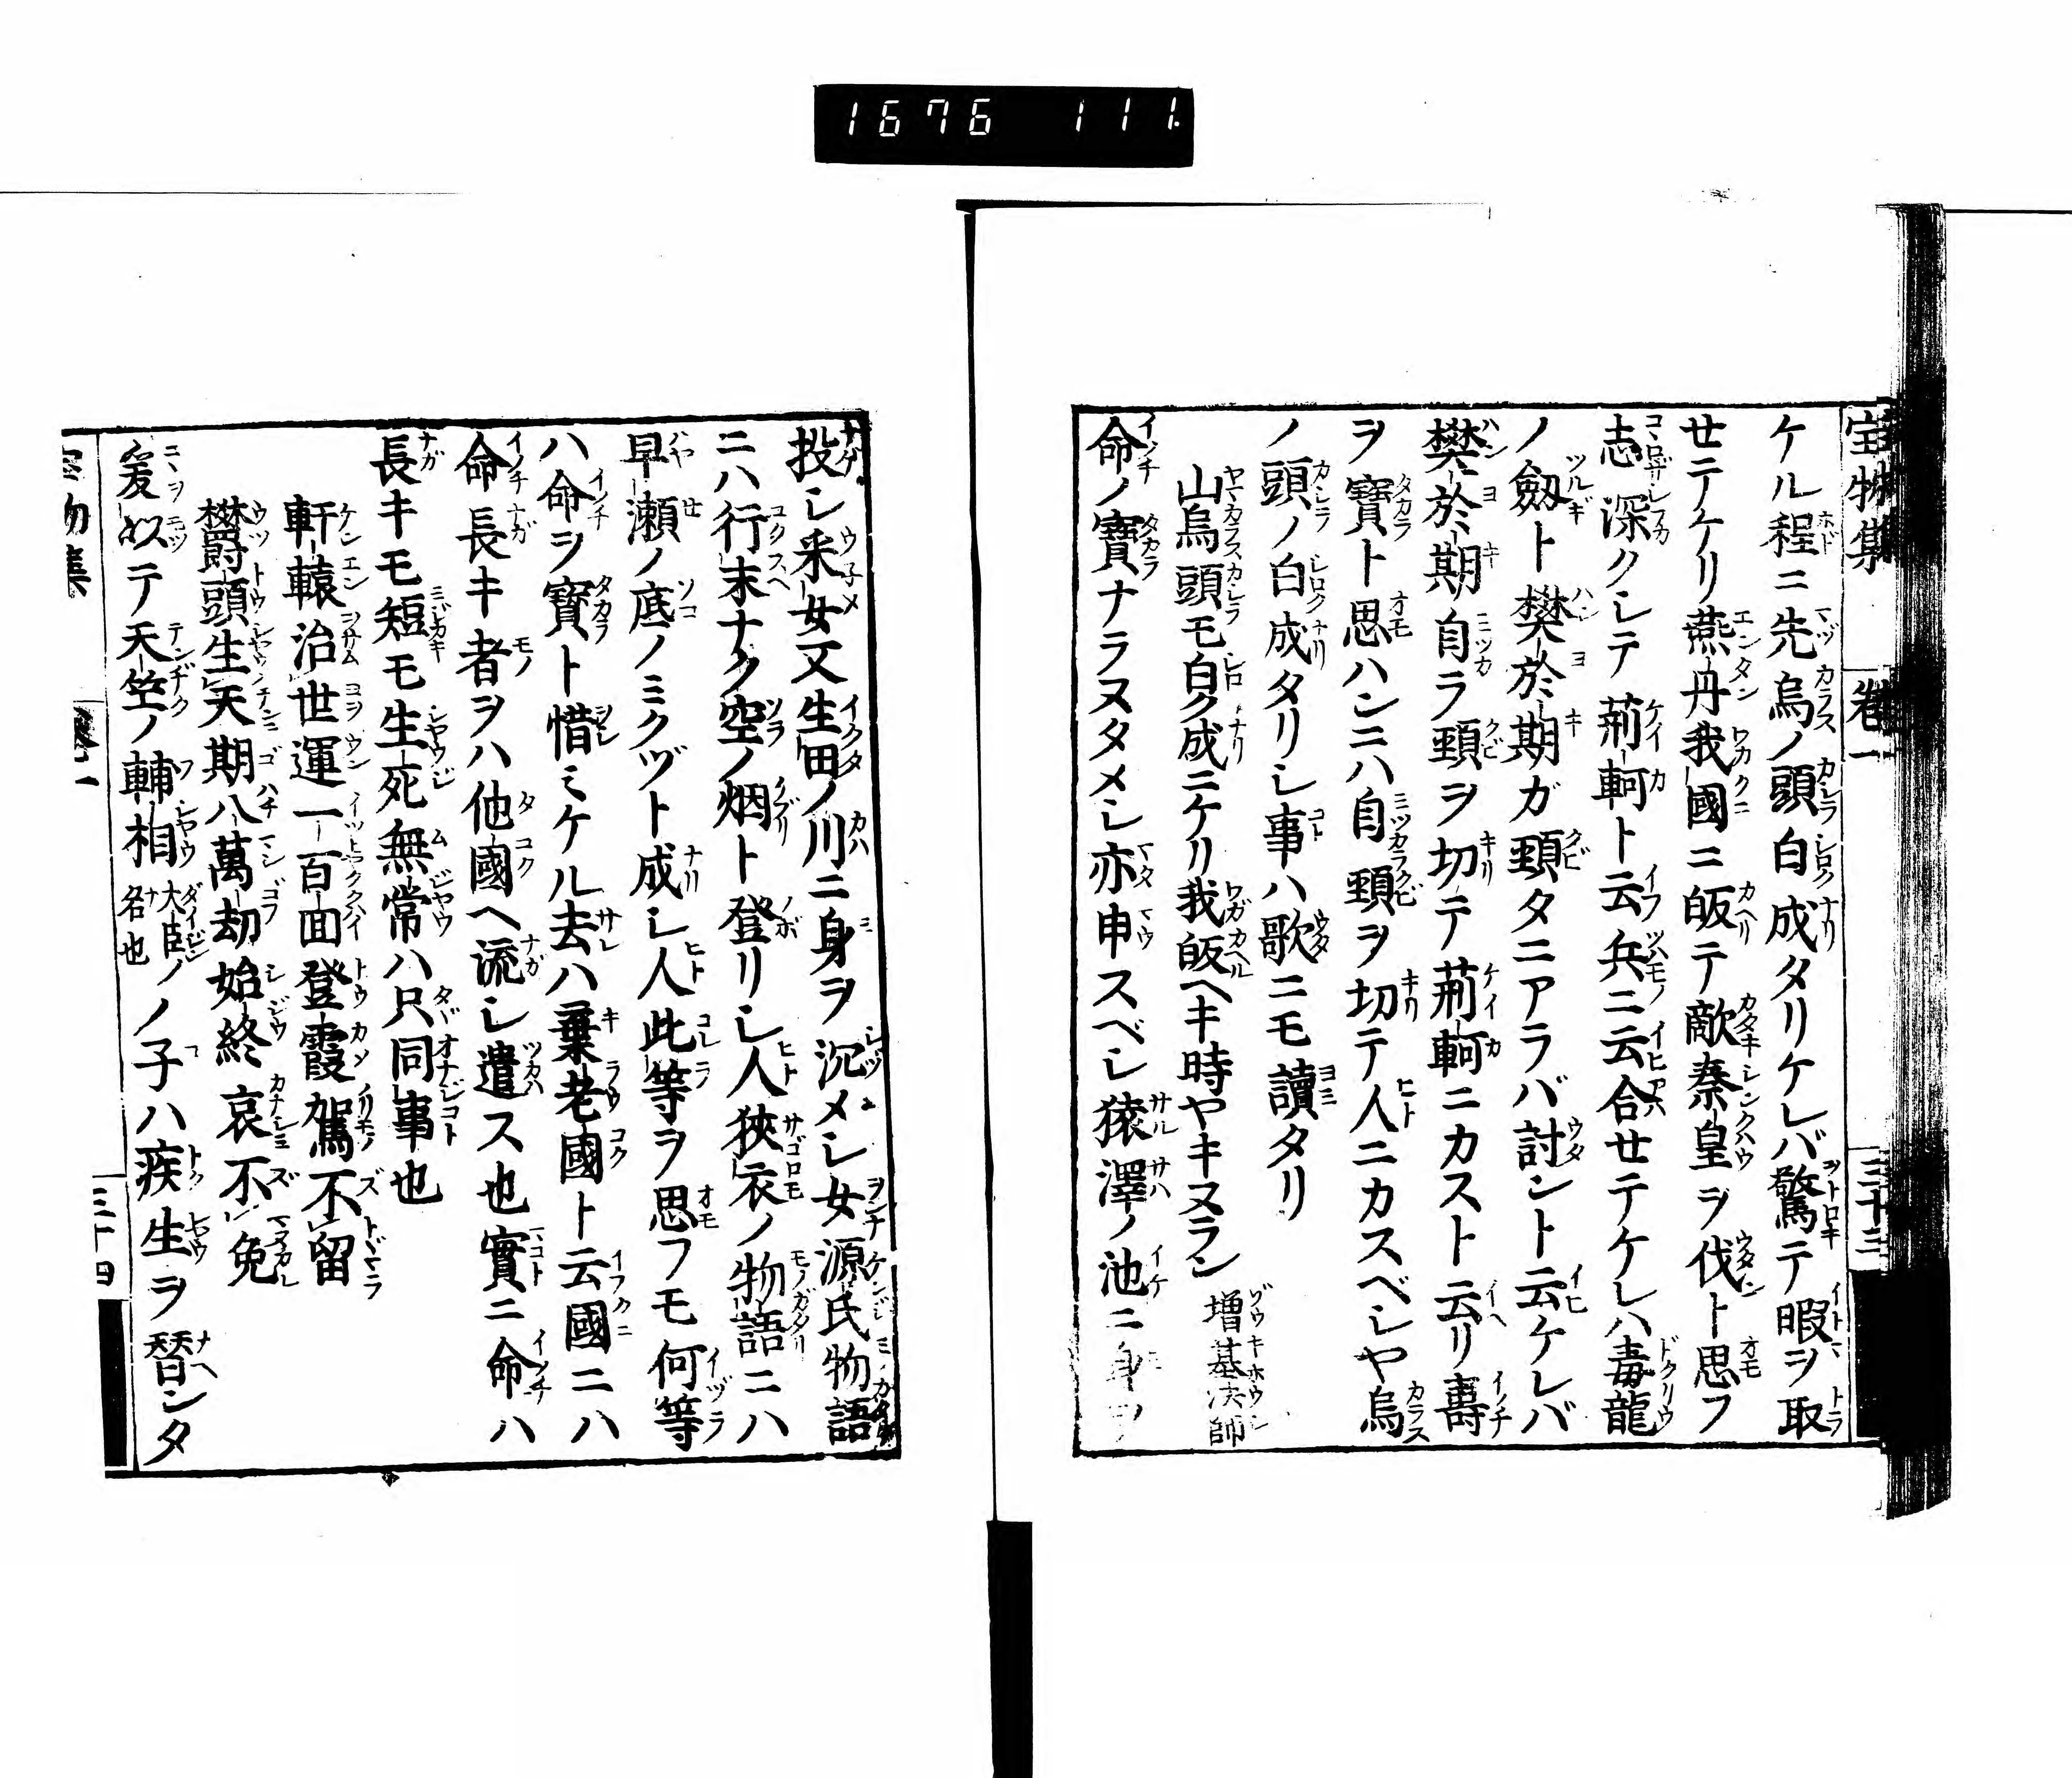 1676 111.
宝物集 卷一 三十三
ケル程ニ先烏ノ頭白成タリケレバ驚テ暇ヲ取
セテケリ燕丹我國ニ皈テ敵秦皇ヲ伐ト思フ
志深クシテ荊軻ト云兵ニ云合セテケレハ毒龍
ノ劔ト樊於期ガ頸タニアラバ討ント云ケレバ
樊於期自ラ頸ヲ切テ荊軻ニカスト云リ壽
ヲ寶ト思ハンニハ自頸ヲ切テ人ニカスベシヤ烏
ノ頭ノ白成タリシ事ハ歌ニモ讀タリ
山烏頭モ白ク成ニケリ我皈ヘキ時ヤキヌラン 増基法師
命ノ寶ナラヌタメシ亦申スベシ猿澤ノ池ニ身ヲ
投シ采女又生田ノ川ニ身ヲ沉メシ女源氏物語
ニハ行末ナク空ノ烟ト登リシ人狹衣ノ物語ニハ
早瀬ノ底ノミクヅト成シ人此等ヲ思フモ何等
ハ命ヲ寶ト惜ミケル去ハ棄老國ト云國ニハ
命長キ者ヲハ他國ヘ流シ遣ス也實ニ命ハ
長キモ短モ生死無常ハ只同事也
軒轅治世運一百面登霞駕不留
欝頭生天期八萬劫始終哀不免
爰以テ天竺ノ輔相大臣ノ名也ノ子ハ疾生ヲ替ンタ
物集 三十四